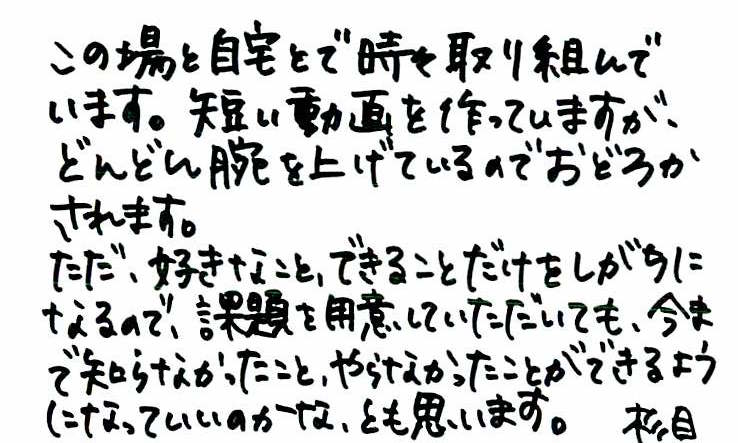 この場と自宅とで時々取り組んで
います。短い動画を作っていますが、
どんどん腕を上げているのでおどろか
されます。
ただ、好きなこと、できることだけをしがちに
なるので、課題を用意していただいても、今ま
で知らなかったこと、やらなかったことができるよう
になっていいのかな、とも思います。